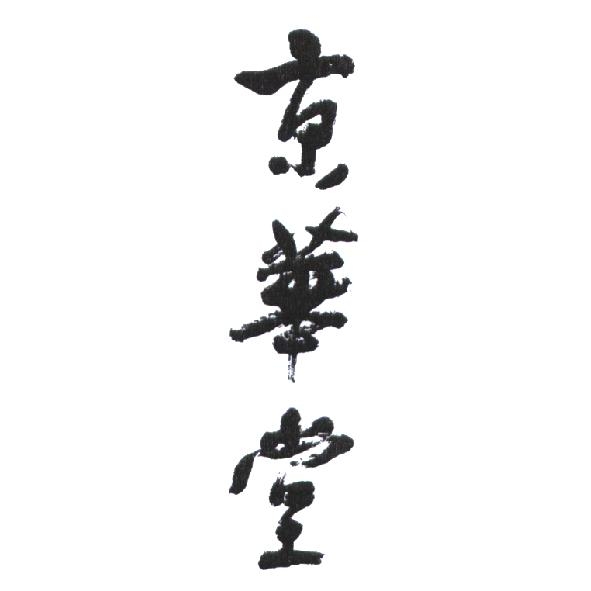 京華堂